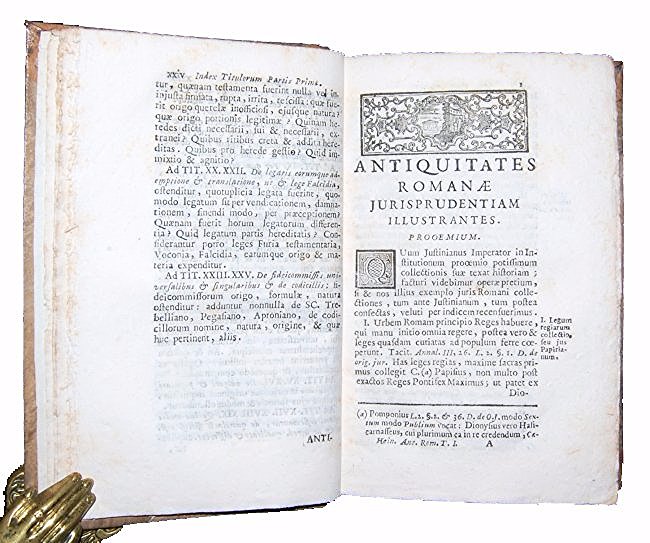 xxiv Index Titulorum Partis Primæ.
tur, quænam testamenta fuerint nulla vel in-
injusta firmata, rupta, irrita, tescissa: quæ fue-
rit origo querelæ inofficiosi, ejusque natura?
quæ origo portionis legitimæ? Quinam he-
redes dicti necessarii, sui & necessarii, ex-
tranei? Quibus ritibus creta & addita here-
ditas. Quibus pro herede gestio? Quid im-
mixtio & agnitio?
Ad TIT. XX. XXII. De legatis earumque ad-
emptione & translatione, ut & lege Falcidia,
ostenditur, quotuplicia legata fuerint, quo-
modo legatum sit per vendicationem, damna-
tionem, sinendi modo, per præceptionem?
Quænam fuerit horum legatorum differen-
tia? Quid legatum partis hereditatis? Con-
siderantur porro leges Furia testamentaria,
Voconia, Falcidia, earumque origo & ma-
teria expenditur.
Ad TIT. XXIII. XXV. De fideicommissis uni-
versalibus & singularibus & de codicillis; fi-
deicommissorum origo, formulæ, natura
ostenditur: adduntur nonnulla de SC. Tre-
belliano, Pegasiano, Aproniano, de codi-
cillorum nomine, natura, origine, & quæ
huc pertinent, aliis.
ANTI-
1
ANTIQUITATES
ROMANÆ
JURISPRUDENTIAM
ILLUSTRANTES.
PROOEMIUM.
QUum Justinianus Imperator in In-
stitutionum prooemio potissimum
collectionis suæ texat historiam;
facturi videbimur operæ pretium,
si & nos illius exemplo juris Romani colle-
ctiones, tum ante Justinianum, tum postea
confectas, veluti per indicem recensuerimus.
I. Urbem Romam principio Reges habuere,
qui manu initio omnia regere, postea vero &
leges quasdam curiatas ad populum ferre cœ-
perunt. Tacit. Annal. III. 26. L. 2. §. 1. D. de
orig. jur. Has leges regias, maxime sacras pri-
mus collegit C. (a) Papisius, non multo post
exactos Reges Pontifex Maximus; ut patet ex
Dio-
I. Legum
regiarum
collectio,
seu jus
Papiria-
num.
(a) Pomponius L. 2. §. 2. & 36. D. de O. J. modo Sex-
tum modo Publium vocat: Dionysius vero Hali-
carnasseus, cui plurimum ea in re credendum, Ca-
Hein. Ant. Rom. T. I. A